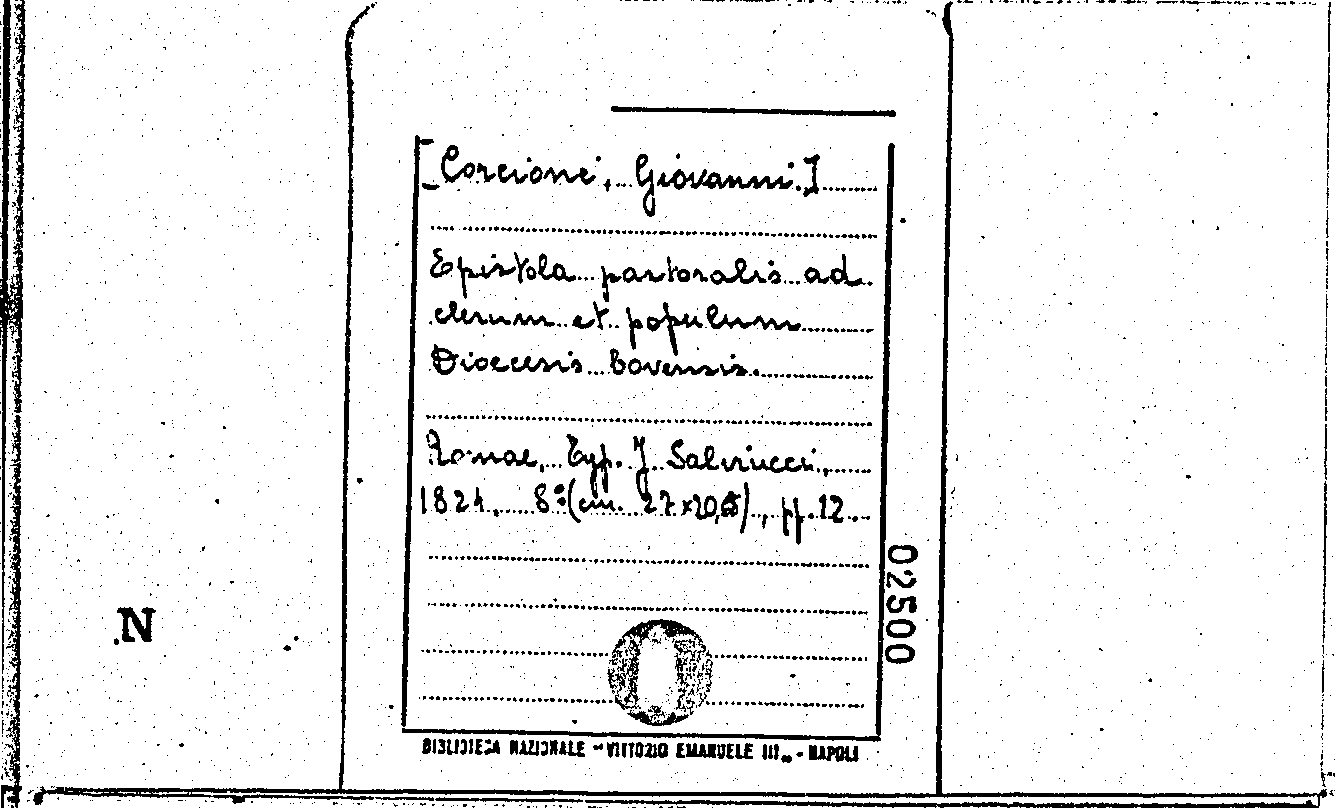 [Corcione, Giovanni.]
Epistola pastoralis ad
clerum et populum
Dioecesis Bovensis.
Romae, Typ. J Salviucci,
1824, 8º (cm. 27x20,5), pp. 12.
02500
N
BIBLIOTECA NAZIONALE "VITTORIO EMANUELE III" - NAPOLI